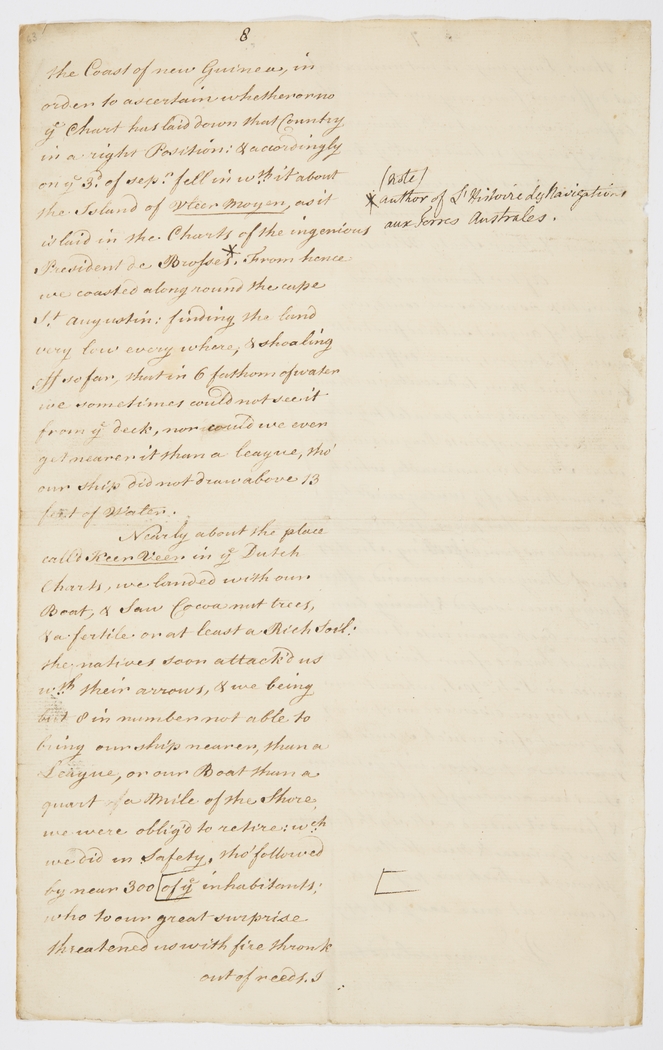 8
the Coast of new Guinea, in
order to ascertain whether or no
yᵉ Chart has laid down that Country
in a right Position: & accordingly
on yᵉ 3ᵈ of sepʳ fell in wᵗʰ it about
the Island of Vleer Moyen, as it
is laid in the Charts of the ingenious
President de Brosses.* From hence
we coasted along round the cape
Sᵗ Augustin: finding the land
very low every where, & shoaling
off so far, that in 6 fathom of water
we sometimes could not see it
from yᵉ deck, nor could we ever
get nearer it than a league, tho'
our ship did not draw above 13
feet of Water.
Nearly about the place
call'd Keer Veer in yᵉ Dutch
Charts, we landed with our
Boat, & Saw Cocoa nut trees,
& a fertile or at least a Rich Soil:
the natives soon attack'd us
wᵗʰ their arrows, & we being
but 8 in number not able to
bring our ship nearer, than a
League, or our Boat than a
quart of a Mile of the Shore
we were oblig'd to retire: wᶜʰ
we did in Safety, tho' followed
by near 300 [of yᵉ inhabitants;
who to our great surprise
threatened us with fire thrown
out of reeds. I
(Note)
* author of L'Histoire des Navigations
aux Terres Australes.
[